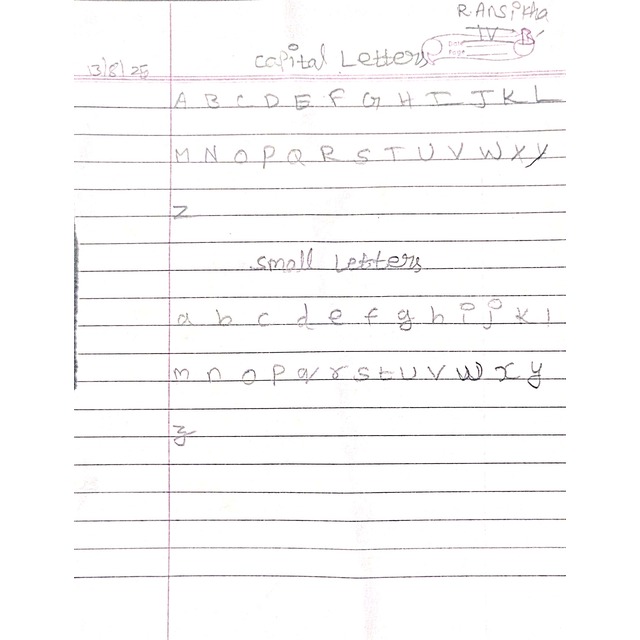 R. Ansikha
IV B
Date
Page
Capital Letters
13/8/25
A B C D E F G H I J K L
M N O P Q R S T U V W X Y
Z
Small Letters
a b c d e f g h i j k l
m n o p q r s t u v w x y
z